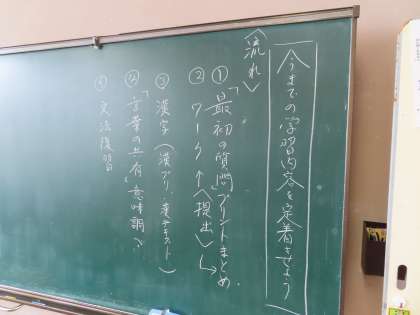 今までの学習内容を定着させよう
〈流れ〉
①「最初の質問」プリントまとめ
② ワーク↑〈提出〉
③ 漢字（漢プリ、漢テキスト）
④「言葉の共有」意味調べ
⑤ 文法復習